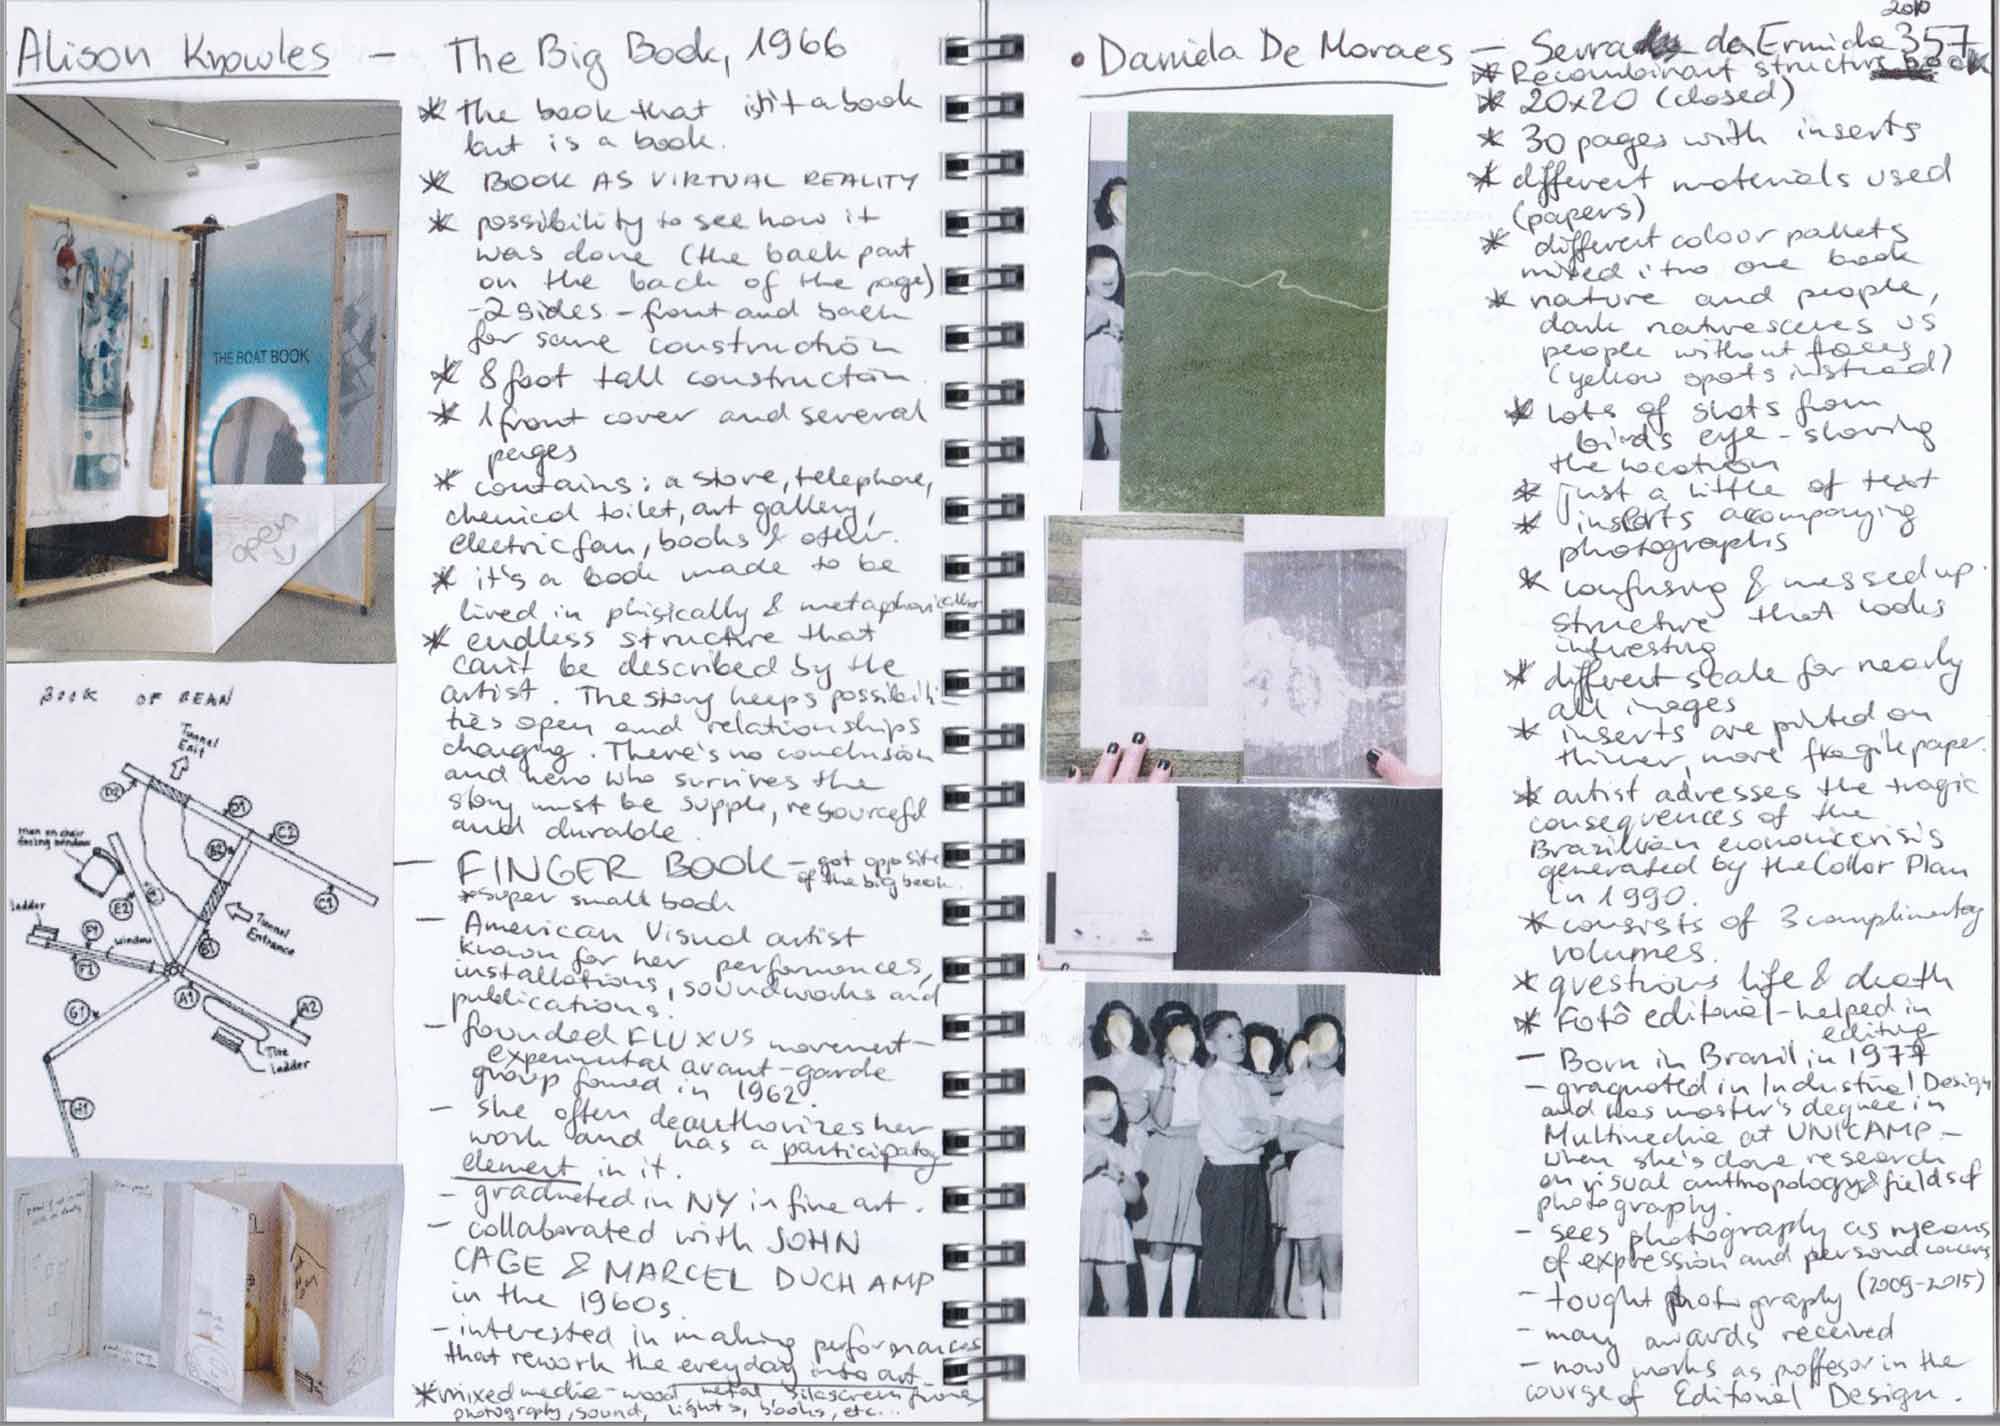 Alison Knowles — The Big Book, 1966
THE BOAT BOOK
open
* The book that isn't a book
but is a book.
* BOOK AS VIRTUAL REALITY
* possibility to see how it
was done (the back part
on the back of the page)
-2 sides - front and back
for same construction
* 8 foot tall construction.
* 1 front cover and several
pages
* contains: a stove, telephone,
chemical toilet, art gallery,
electric fan, books & other.
* it's a book made to be
lived in phisically & metaphorically
* endless structure that
can't be described by the
artist. The story keeps possibili-
ties open and relationships
changing. There's no conclusion
and hero who survives the
story must be supple, resourceful
and durable.
— FINGER BOOK - got opposite
of the big book.
*super small book
- American Visual artist
known for her performances,
installations, soundworks and
publications.
- founded FLUXUS movement-
experimental avant-garde
group fomed in 1962.
- she often deauthorizes her
work and has a participatory
element in it.
- graduated in NY in fine art.
- collaborated with JOHN
CAGE & MARCEL DUCHAMP
in the 1960s.
- interested in making performances
that rework the everyday into art.
*mixed media - wood, metal, silkscreen,
photography, sound, lights, books, etc...
BOOK OF BEAN
Tunnel
Exit
D2
D1
C2
man on chair
facing window
B2
E2
C1
ladder
F2
window
Tunnel
Entrance
B1
F1
A1
A2
G1
Tire
ladder
H1
• Daniela De Moraes — Serra da Ermida 357
2010
* Recombinant structure book
* 20x20 (closed)
* 30 pages with inserts
* different materials used
(papers)
* different colour pallets
mixed into one book
* nature and people,
dark nature scenes vs
people without faces
(yellow spots instead)
* lots of shots from
bird's eye - showing
the location
* just a little of text
* inserts accompanying
photographs
* confusing & messed up
structure that looks
interesting
* different scale for nearly
all images
* inserts are printed on
thinner, more fragile paper.
* artist adresses the tragic
consequences of the
Brazilian economic crisis
generated by the Collor Plan
in 1990.
* consists of 3 complimentary
volumes.
* questions life & death
* Fotô editorial - helped in
editing
- Born in Brazil in 1977
- graduated in Industrial Design
and has master's degree in
Multimedia at UNICAMP -
when she's done research
on visual anthropology & fields of
photography.
- sees photography as means
of expression and personal concerns
- tought photography (2009-2015)
- many awards received
- now works as proffesor in the
course of Editorial Design.